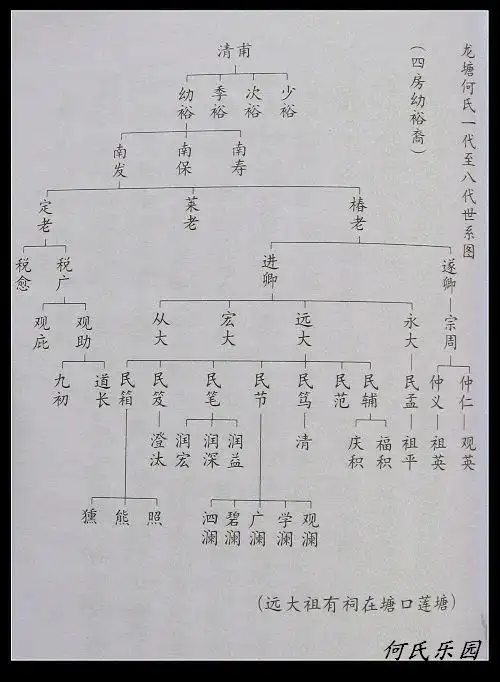 龙塘何氏一代至八代世系图
(四房幼裕裔)
清甫
少裕 次裕 季裕 幼裕
南寿 南保 南发
椿老 菜老 定老
遂卿 进卿 税广 税愈
宗周 永大 远大 宏大 从大 观助 观庇
仲仁 仲义 民孟 民辅 民范 民笃 民节 民笔 民笈 民箱 道长 九初
观英 祖英 祖平 福积 庆积 清 润益 润深 润宏 澄汰
观澜 学澜 广澜 碧澜 泗澜 照 熊 獯
(远大祖有祠在塘口莲塘)
何氏乐园